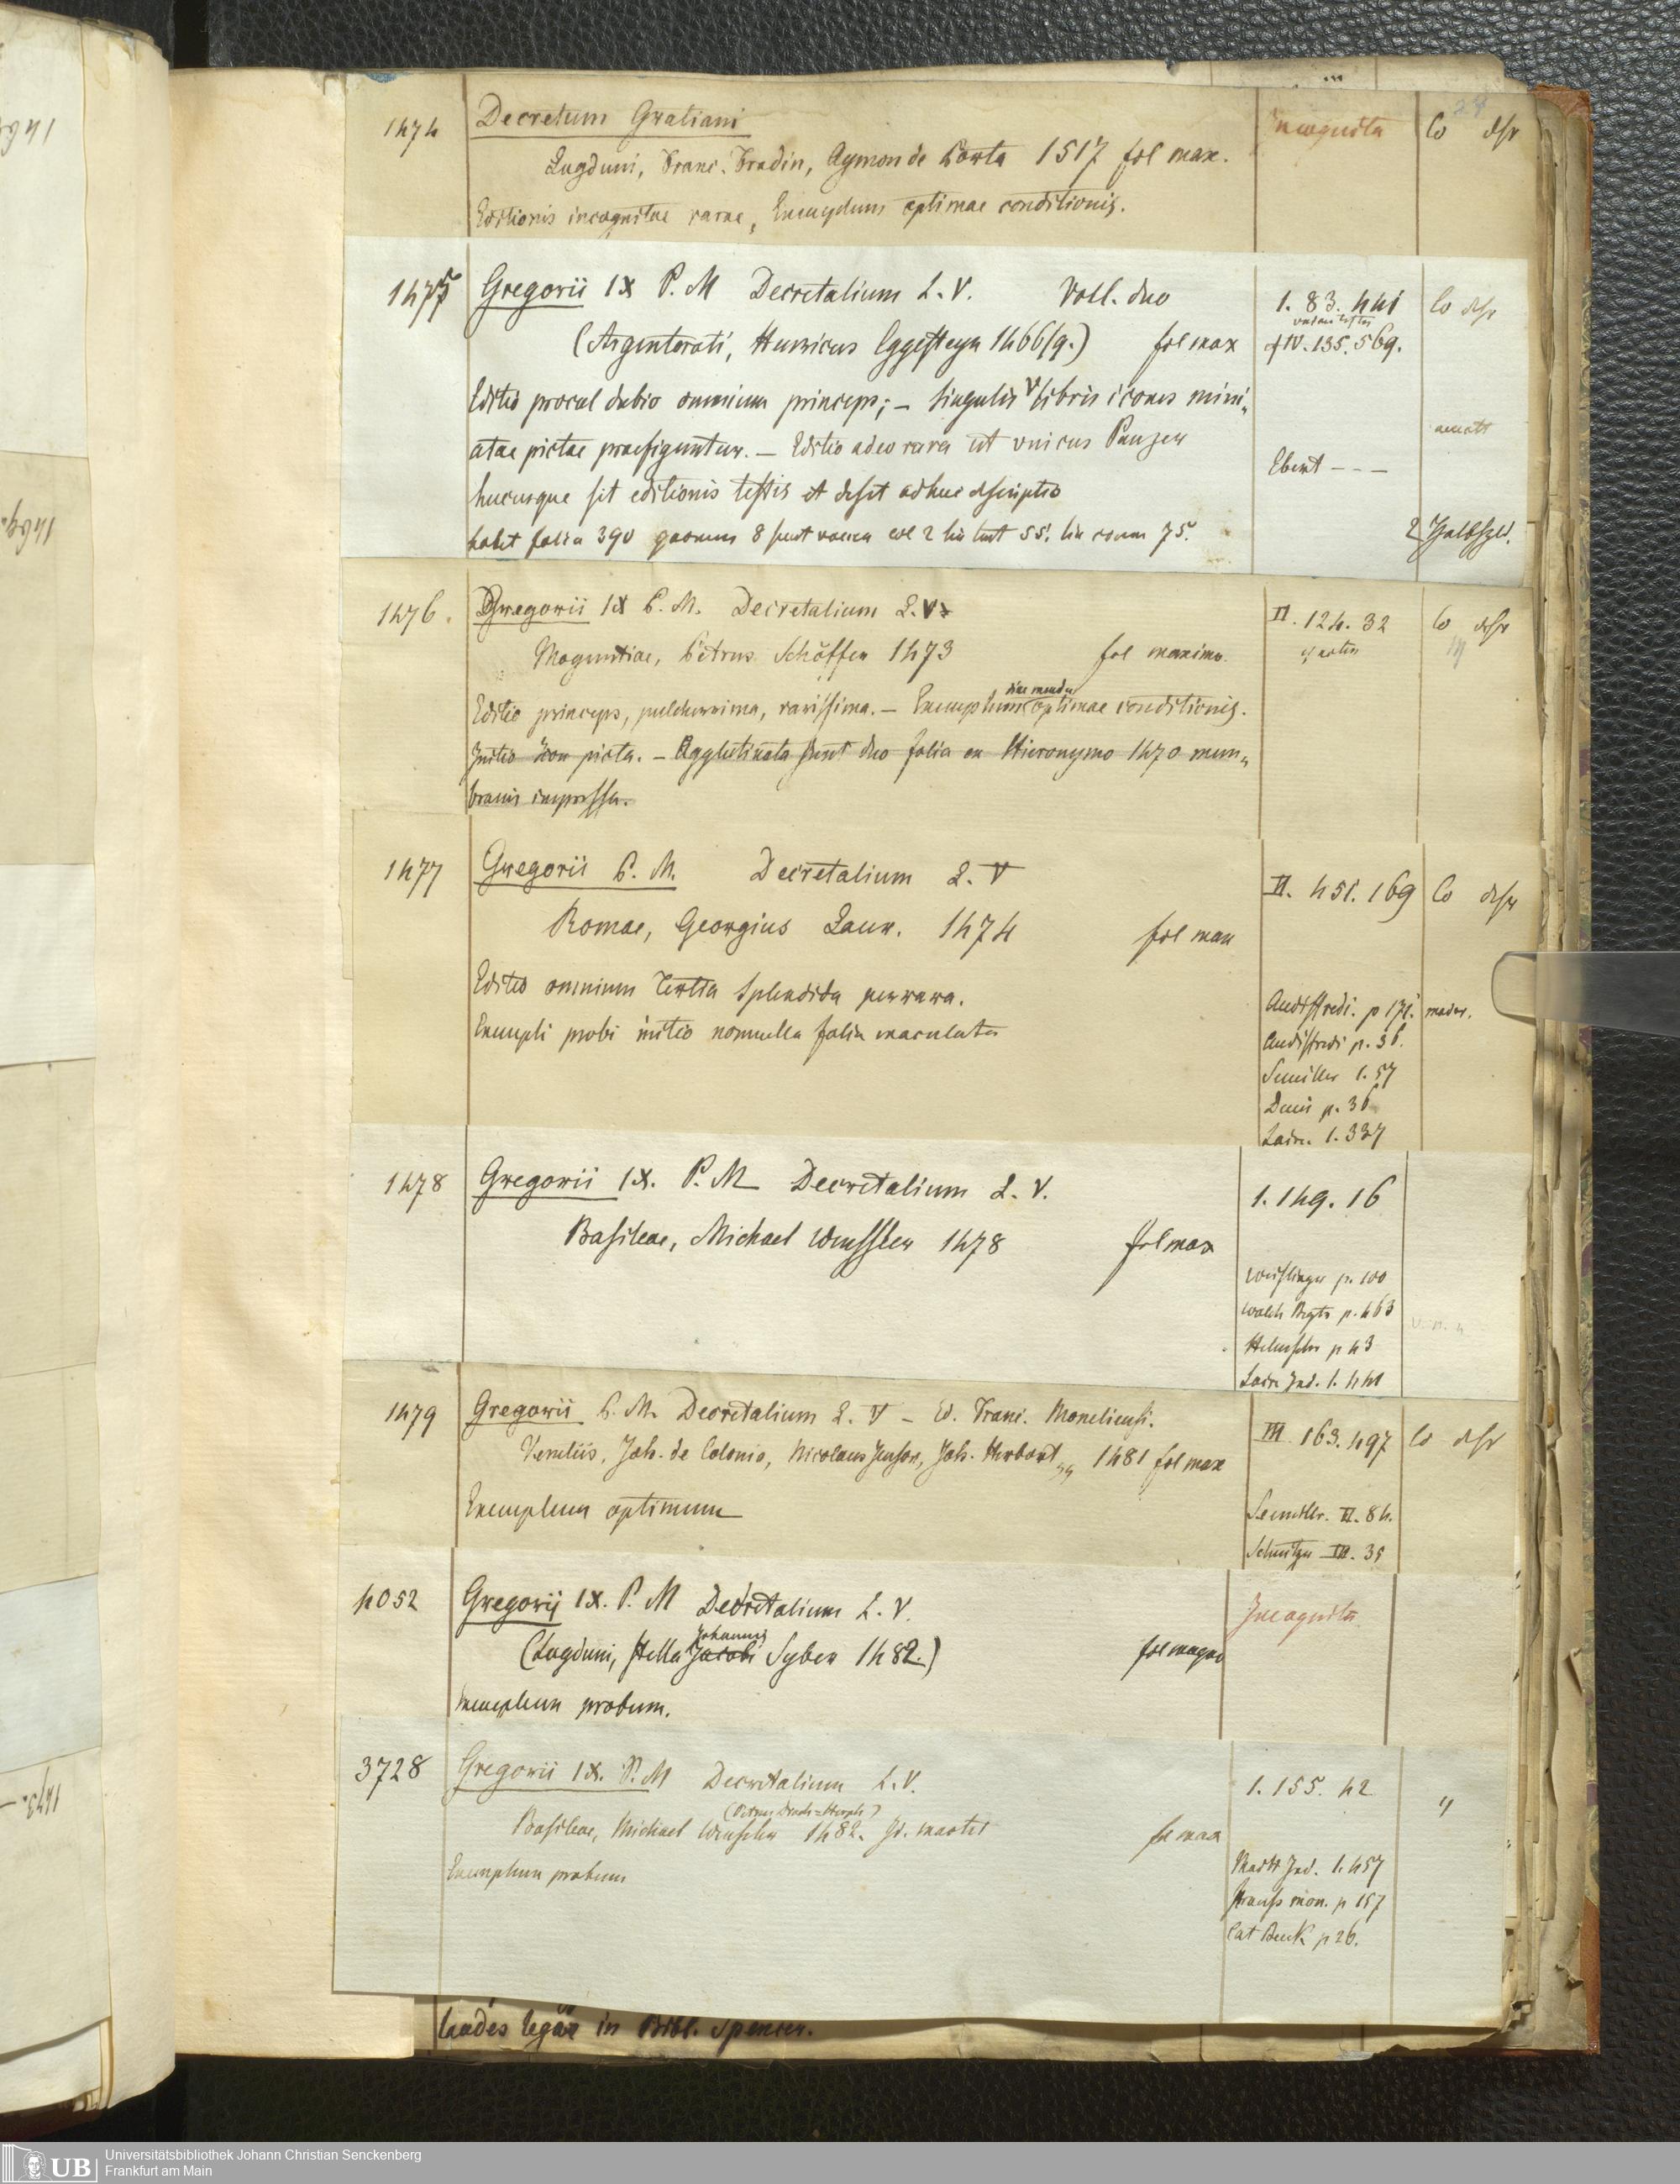 24
1474 Decretum Gratiani incognita Co dsr
Lugduni, Franc. Fradin, Aymon de Porta 1517 fol max.
Editionis incognitae rarae, Exemplum optimae conditionis.
1475 Gregorii IX P. M Decretalium L. V. Voll. duo 1. 83. 441 Co dsr
(Argentorati, Henricus Eggesteyn 1466/9.) fol max cf IV. 135. 569.
Editio procul dubio omnium princeps; – singulis V libris icones mini„
atae pictae praefiguntur. – Editio adeo rara ut unicus Panzer Ebert – – –
hucusque sit editionis testis et desit adhuc descriptio
habet folia 390 quorum 8 sunt vacua col 2 lin text 55. lin comm 75. 2
1476. Gregorii IX P. M. Decretalium L. V. II. 124. 32 Co dsr
Moguntiae, Petrus Schöffer 1473 fol maximo. cf notam
Editio princeps, pulcherrima, rarissima. – Exemplum sine menda optimae conditionis.
Initio Icon picta. – Agglutinata sunt duo folia ex Hieronymo 1470 mem„
branis impressa.
1477 Gregorii P. M. Decretalium L. V II. 451. 169 Co dsr
Romae, Georgius Laur. 1474 fol max
Editio omnium tertia splendida perrara. Audiffredi. p 171.
Exempli probi initio nonnulla folia maculata Audiffredi p. 36.
Semiller 1. 57
Denis p. 36
Laire. 1. 337
1478 Gregorii IX. P. M Decretalium L. V. 1. 149. 16
Basileae, Michael Wenssler 1478 fol max
Weislinger p. 100
Walch p. 463
Helmschr p 43
Laire Ind. 1. 441
1479 Gregorii P. M. Decretalium L. V – Ed. Franc. Moneliensi. III 163. 497 Co dsr
Venetiis, Joh. de Colonia, Nicolaus Jenson, Joh. Herbort 1481 fol max
Exemplum optimum Seemiller. II. 84.
III. 35
4052 Gregorij IX. P. M Decretalium L. V. Incognita
Johannis
(Lugduni, stella Jacobi Syber 1482.) fol magno
Exemplum probum.
3728 Gregorii IX. P. M Decretalium L. V. 1. 155. 42 „
Basileae, Michael Wenssler 1482. Id. martis fol max
Exemplum probum Ind. 1. 457
Strauss mon. p 157
Cat p 26.
in Bibl. Spencer.
UB Universitätsbibliothek Johann Christian Senckenberg
Frankfurt am Main